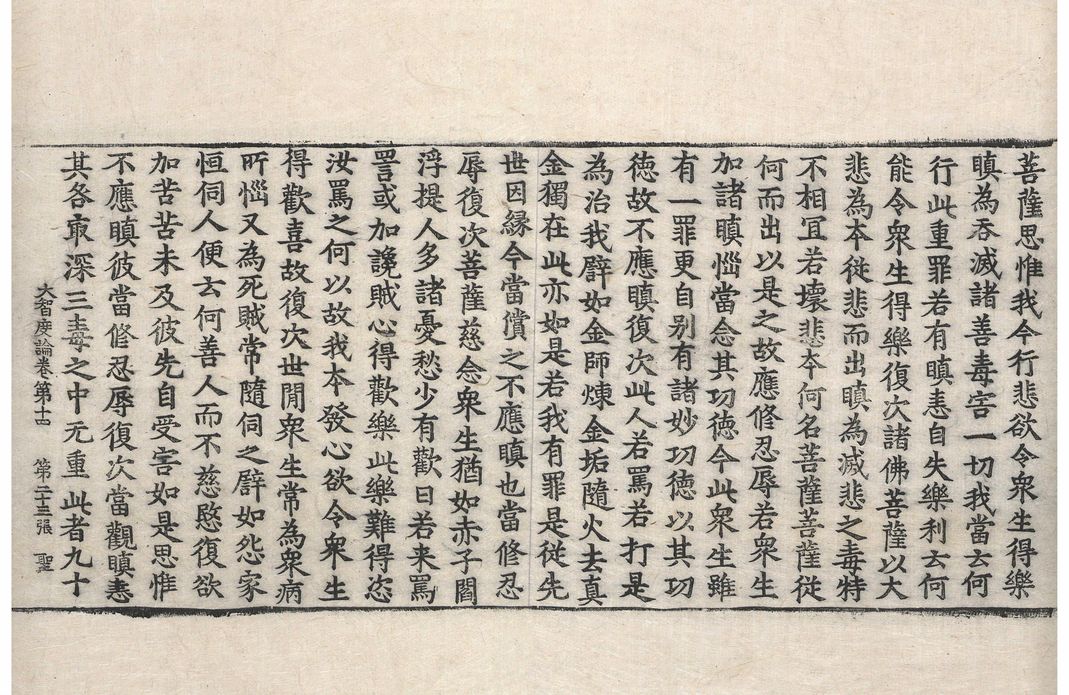 菩薩思惟我今行悲欲令衆生得樂
瞋為吞滅諸善毒害一切我當云何
行此重罪若有瞋恚自失樂利云何
能令衆生得樂復次諸佛菩薩以大
悲為本從悲而出瞋為滅悲之毒特
不相冝若壞悲本何名菩薩菩薩從
何而出以是之故應修忍辱若衆生
加諸瞋惱當念其功德今此衆生雖
有一罪更自别有諸妙功德以其功
德故不應瞋復次此人若罵若打是
為治我辟如金師煉金垢隨火去真
金獨在此亦如是若我有罪是從先
世因縁今當償之不應瞋也當修忍
辱復次菩薩慈念衆生猶如赤子閻
浮提人多諸憂愁少有歡日若来罵
詈或加讒賊心得歡樂此樂難得恣
汝罵之何以故我本發心欲令衆生
得歡喜故復次世閒衆生常為衆病
所惱又為死賊常隨伺之辟如怨家
恒伺人便云何善人而不慈愍復欲
加苦苦未及彼先自受害如是思惟
不應瞋彼當修忍辱復次當觀瞋恚
其咎㝡深三毒之中无重此者九十
大智度論卷第十四 第二十三張 聖